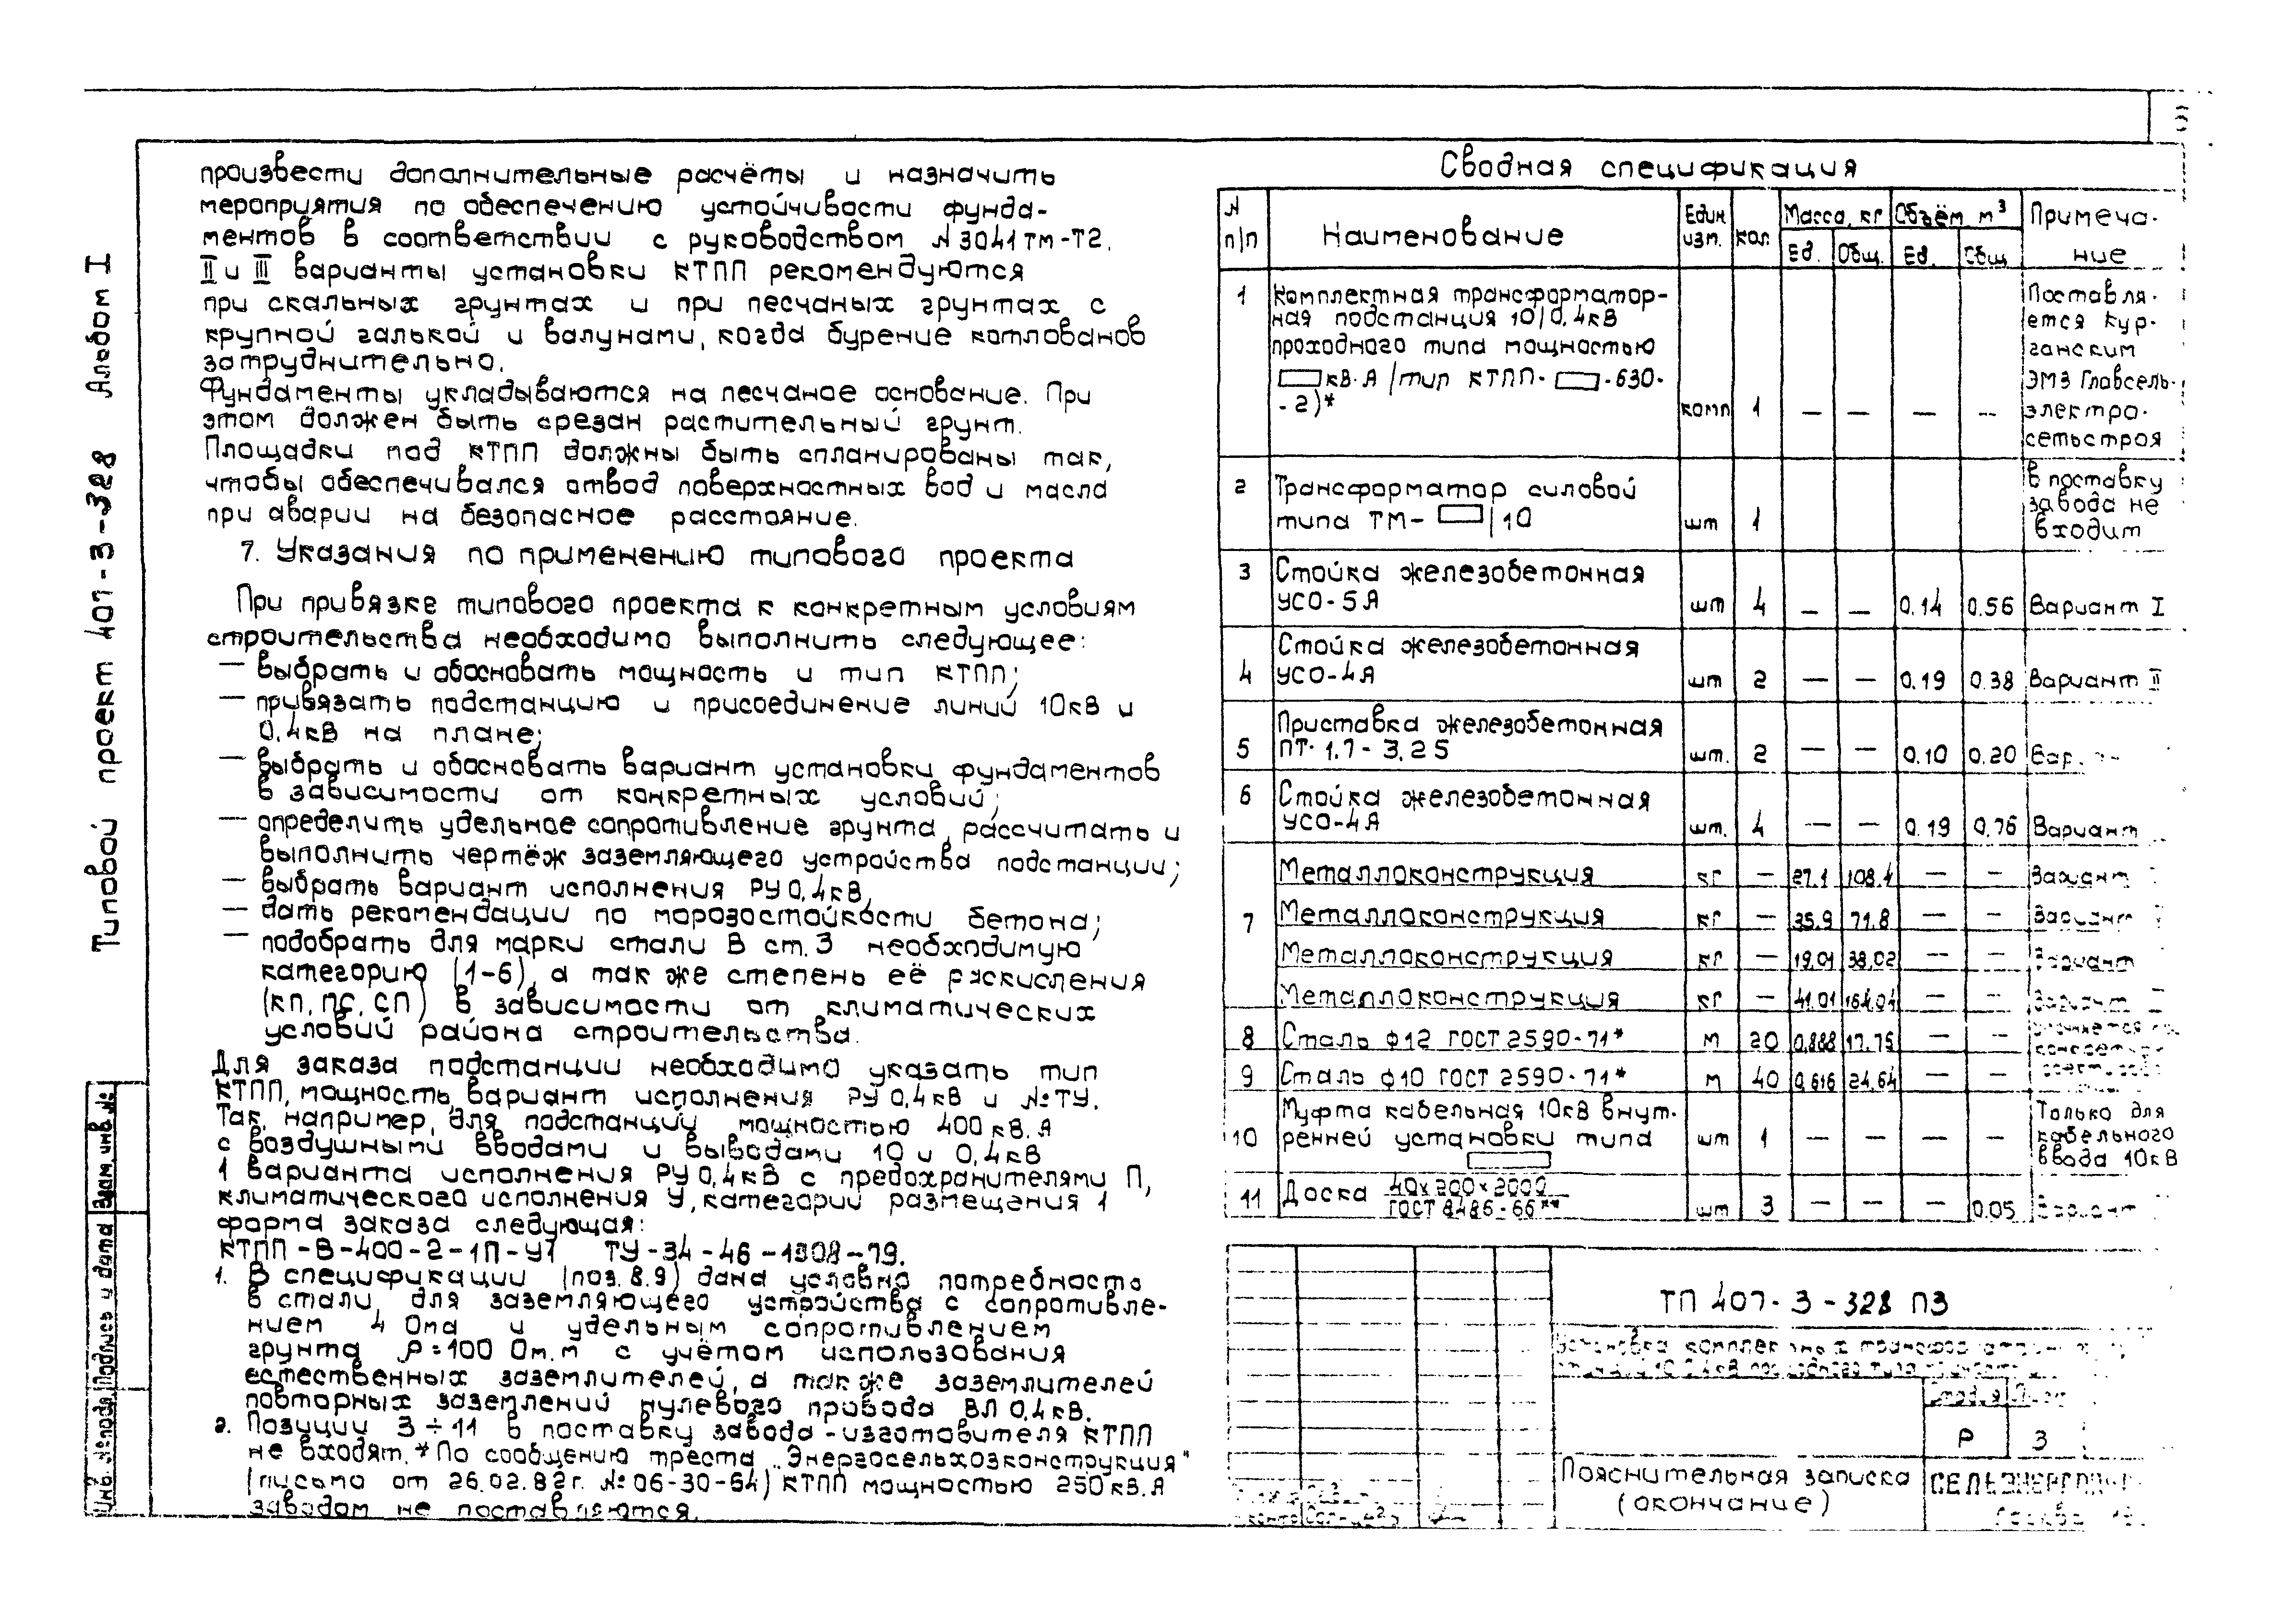 Типовой проект 407-3-328 Альбом I
произвести дополнительные расчёты и назначить
мероприятия по обеспечению устойчивости фунда-
ментов в соответствии с руководством № 3041тм-Т2.
II и III варианты установки КТПП рекомендуются
при скальных грунтах и при песчаных грунтах с
крупной галькой и валунами, когда бурение котлованов
затруднительно.
Фундаменты укладываются на песчаное основание. При
этом должен быть срезан растительный грунт.
Площадки под КТПП должны быть спланированы так,
чтобы обеспечивался отвод поверхностных вод и масла
при аварии на безопасное расстояние.
7. Указания по применению типового проекта
При привязке типового проекта к конкретным условиям
строительства необходимо выполнить следующее:
— выбрать и обосновать мощность и тип КТПП;
— привязать подстанцию и присоединение линий 10кВ и
0,4кВ на плане;
— выбрать и обосновать вариант установки фундаментов
в зависимости от конкретных условий;
— определить удельное сопротивление грунта, рассчитать и
выполнить чертёж заземляющего устройства подстанции;
— выбрать вариант исполнения РУ 0,4кВ,
— дать рекомендации по морозостойкости бетона;
— подобрать для марки стали В ст.3 необходимую
категорию (1-6), а так же степень её раскисления
(кп, пс, сп) в зависимости от климатических
условий района строительства.
Для заказа подстанции необходимо указать тип
КТПП, мощность, вариант исполнения РУ 0,4кВ и № ТУ.
Так, например, для подстанции мощностью 400 кВ.А
с воздушными вводами и выводами 10 и 0,4кВ
1 варианта исполнения РУ 0,4кВ с предохранителями П,
климатического исполнения У, категории размещения 1
форма заказа следующая:
КТПП-В-400-2-1П-У1 ТУ-34-46-1308-79.
1. В спецификации (поз. 8.9) дана условно потребность
в стали для заземляющего устройства с сопротивле-
нием 4 Ома и удельным сопротивлением
грунта ρ=100 Ом.м с учётом использования
естественных заземлителей, а так же заземлителей
повторных заземлений нулевого провода ВЛ 0,4кВ.
2. Позиции 3÷11 в поставку завода-изготовителя КТПП
не входят. *По сообщению треста „Энергосельхозконструкция"
(письмо от 26.02.82г. № 06-30-64) КТПП мощностью 250кВ.А
заводом не поставляются.
Сводная спецификация
N п/п Наименование Един изм. кол. Масса, кг Объём м³ Примеча-
ние
Ед. Общ. Ед. Общ
1 Комплектная трансформатор-
ная подстанция 10/0,4кВ
проходного типа мощностью
кВ.А /тип КТПП- -630-
-2)* комп 1 — — — —
Поставля-
ется Кур-
ганским
ЭМЗ Главсель-
электро-
сетьстроя
2 Трансформатор силовой
типа ТМ- /10 шт 1
в поставку
завода не
входит
3 Стойка железобетонная
УСО-5А шт 4 — — 0.14 0.56 Вариант I
4 Стойка железобетонная
УСО-4А шт 2 — — 0.19 0.38 Вариант II
5 Приставка железобетонная
ПТ-1.7-3.25 шт. 2 — — 0.10 0.20 Вар.
6 Стойка железобетонная
УСО-4А шт. 4 — — 0.19 0.76 Вариант
7 Металлоконструкция кг — 27.1 108.4 — — Вариант
Металлоконструкция кг — 35.9 71.8 — — Вариант
Металлоконструкция кг — 19.01 38.02 — — Вариант
Металлоконструкция кг — 41.01 164.04 — — Вариант
8 Сталь ф12 ГОСТ 2590-71* м 20 0,888 17.75 — —
9 Сталь ф10 ГОСТ 2590-71* м 40 0,616 24.64 — —
10 Муфта кабельная 10кВ внут-
ренней установки типа шт 1 — — — —
Только для
кабельного
ввода 10кВ
11 Доска 40х200х2000
ГОСТ 8486-66** шт 3 — — — 0.05 Вариант
ТП 407-3-328 ПЗ
Р 3
Пояснительная записка
(окончание)
Взам. инв. №
Подпись и дата
Инв. № подл.